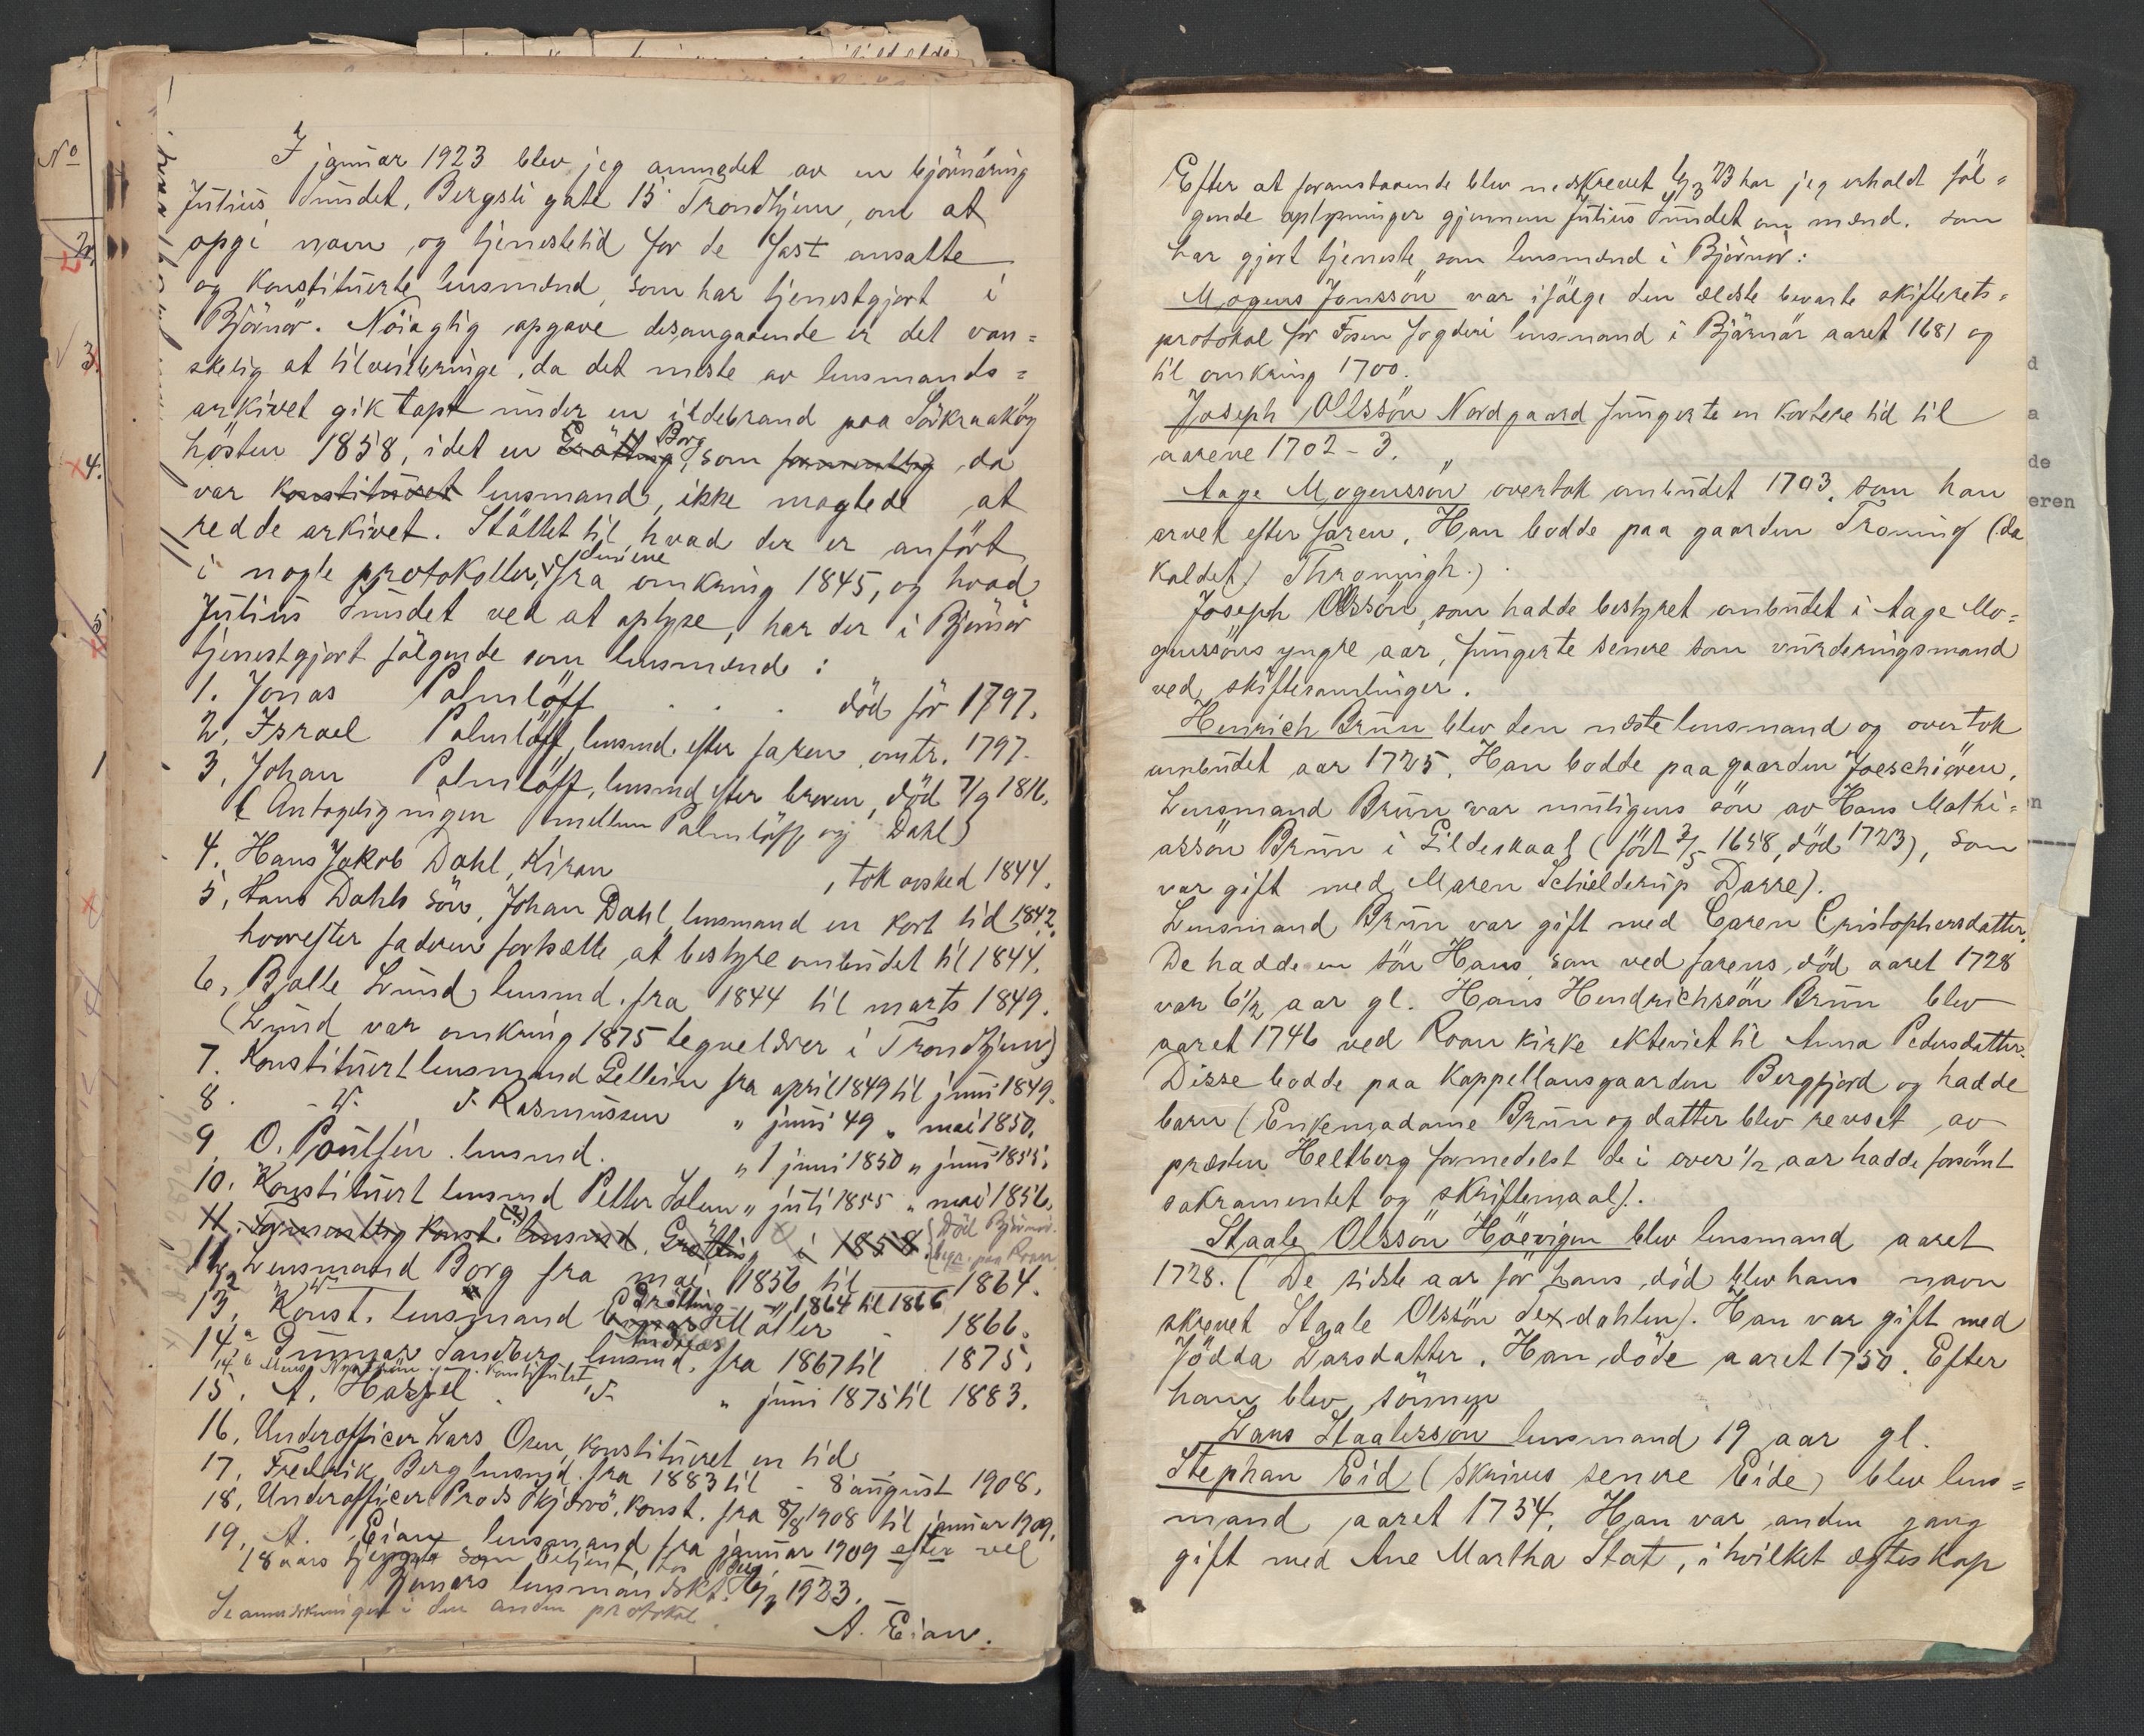 I januar 1923 blev jeg anmodet av en bjørnøring
Julius Sundet, Bergsli gate 15 Trondhjem, om at
opgi navn og tjenestetid for de fast ansatte
og konstituerte lensmænd, som har tjenestgjort i
Bjørnør. Nøiagtig opgave desangaaende er det van=
skelig at tilveiebringe, da det meste av lensmands=
arkivet gik tapt under en ildebrand paa Sørkraakøy
høsten 1858, idet en Grøtting Borg, som formentlig da
var konstitueret lensmand, ikke magtede at
redde arkivet. Støttet til hvad der er anført
i nogle protokoller, fra omkring 1845, og hvad
Julius Sundet vet at oplyse, har der i Bjørnør
tjenestgjort følgende som lensmænde:
1. Jonas Palmløff . . . død før 1797.
2. Israel Palmløff, lensmd. efter faren omtr. 1797.
3. Johan Palmløff, lensmd efter broren, død 7/9 1816.
(Antagelig ingen mellem Palmløff og Dahl)
4. Hans Jakob Dahl, Kiran , tok avsked 1844.
5. Hans Dahls søn, Johan Dahl, lensmand en kort tid 1842,
hvorefter faderen fortsatte at bestyre ombudet til 1844.
6. Balle Lund lensmd. fra 1844 til marts 1849.
(Lund var omkring 1875 tegnelærer i Trondhjem)
7. Konstituert lensmand Gellein fra april 1849 til juni 1849.
8. - " - S. Rasmussen " juni 49 " mai 1850.
9. O. Poulsen lensmd. " 1 juni 1850 " juni 1855.
10. Konstituert lensmd Petter Solem " juli 1855 " mai 1856.
11. Formentlig konst. (?) lensmd. Grøtting i 1858. (Død Bjørnør. begr. paa Roan
11. Lensmand Borg fra mai 1856 til 1864.
12 " Grøtting " 1864 til 1866
13. Konst. lensmand Møller - 1866.
14 a Gunnar Sandberg lensmd. fra 1867 til 1875.
14 b konstituert
15. A. Hassel " juni 1875 til 1883.
16. Underofficer Lars Osen, konstitueret en tid
17. Fredrik Berg lensmd. fra 1883 til - 8 august 1908.
18. Underofficer Prods Skjervø, konst. fra 8/8 1908 til januar 1909.
19. A. Eian lensmand fra januar 1909 efter vel
18 aars tjeneste som betjent hos Berg.
Bjørnørs lensmandskt. 1923.
A. Eian.
Se anmerkningen i den anden protokol.
Efter at foranstaaende blev nedskrevet har jeg erholdt føl=
gende oplysninger gjennem Julius Sundet om mænd, som
har gjort tjeneste som lensmænd i Bjørnør:
Mogens Jonssøn var ifølge den ældste bevarte skifterets=
protokol for Fosen fogderi lensmand i Bjørnør aaret 1681 og
til omkring 1700.
Joseph Ollssøn Nordgaard fungerte en kortere tid til
aarene 1702 - 3.
Aage Mogenssøn overtok ombudet 1703, som han
arvet efter faren. Han bodde paa gaarden Troning (da
kaldet) Throningh.)
Joseph Olssøn, som hadde bestyret ombudet i Aage Mo=
genssøns yngre aar, fungerte senere som vurderingsmand
ved skiftesamlinger.
Henrich Brun blev den næste lensmand og overtok
ombudet aar 1725. Han bodde paa gaarden Joeschiøren.
Lensmand Brun var muligens søn av Hans Mathi=
assøn Brun i Gildeskaal (født 3/5 1658, død 1723), som
var gift med Maren Schielderup Darre).
Lensmand Brun var gift med Caren Cristophersdatter.
De hadde en søn Hans, som ved farens død aaret 1728
var 6½ aar gl. Hans Hendrichssøn Brun blev
aaret 1746 ved Roan kirke ekteviet til Anna Pedersdatter.
Disse bodde paa Kappellansgaarden Bergfjord og hadde
barn (Enkemadame Brun og datter blev revset av
presten Heltberg formedelst de i over ½ aar hadde forsømt
sakramentet og skriftemaal).
Staale Olssøn Høevigen blev lensmand aaret
1728. (De sidste aar før hans død blev hans navn
skrevet Staale Olssøn Sexdahlen). Han var gift med
Jødda Larsdatter. Han døde aaret 1750. Efter
ham blev sønnen
Lars Staalessøn lensmand 19 aar gl.
Stephan Eid (skrives senere Eide) blev lens=
mand aaret 1754. Han var anden gang
gift med Ane Martha Stat, i hvilket egteskap
No
2.
3.
4.
5
1
d
a
de
eren
n